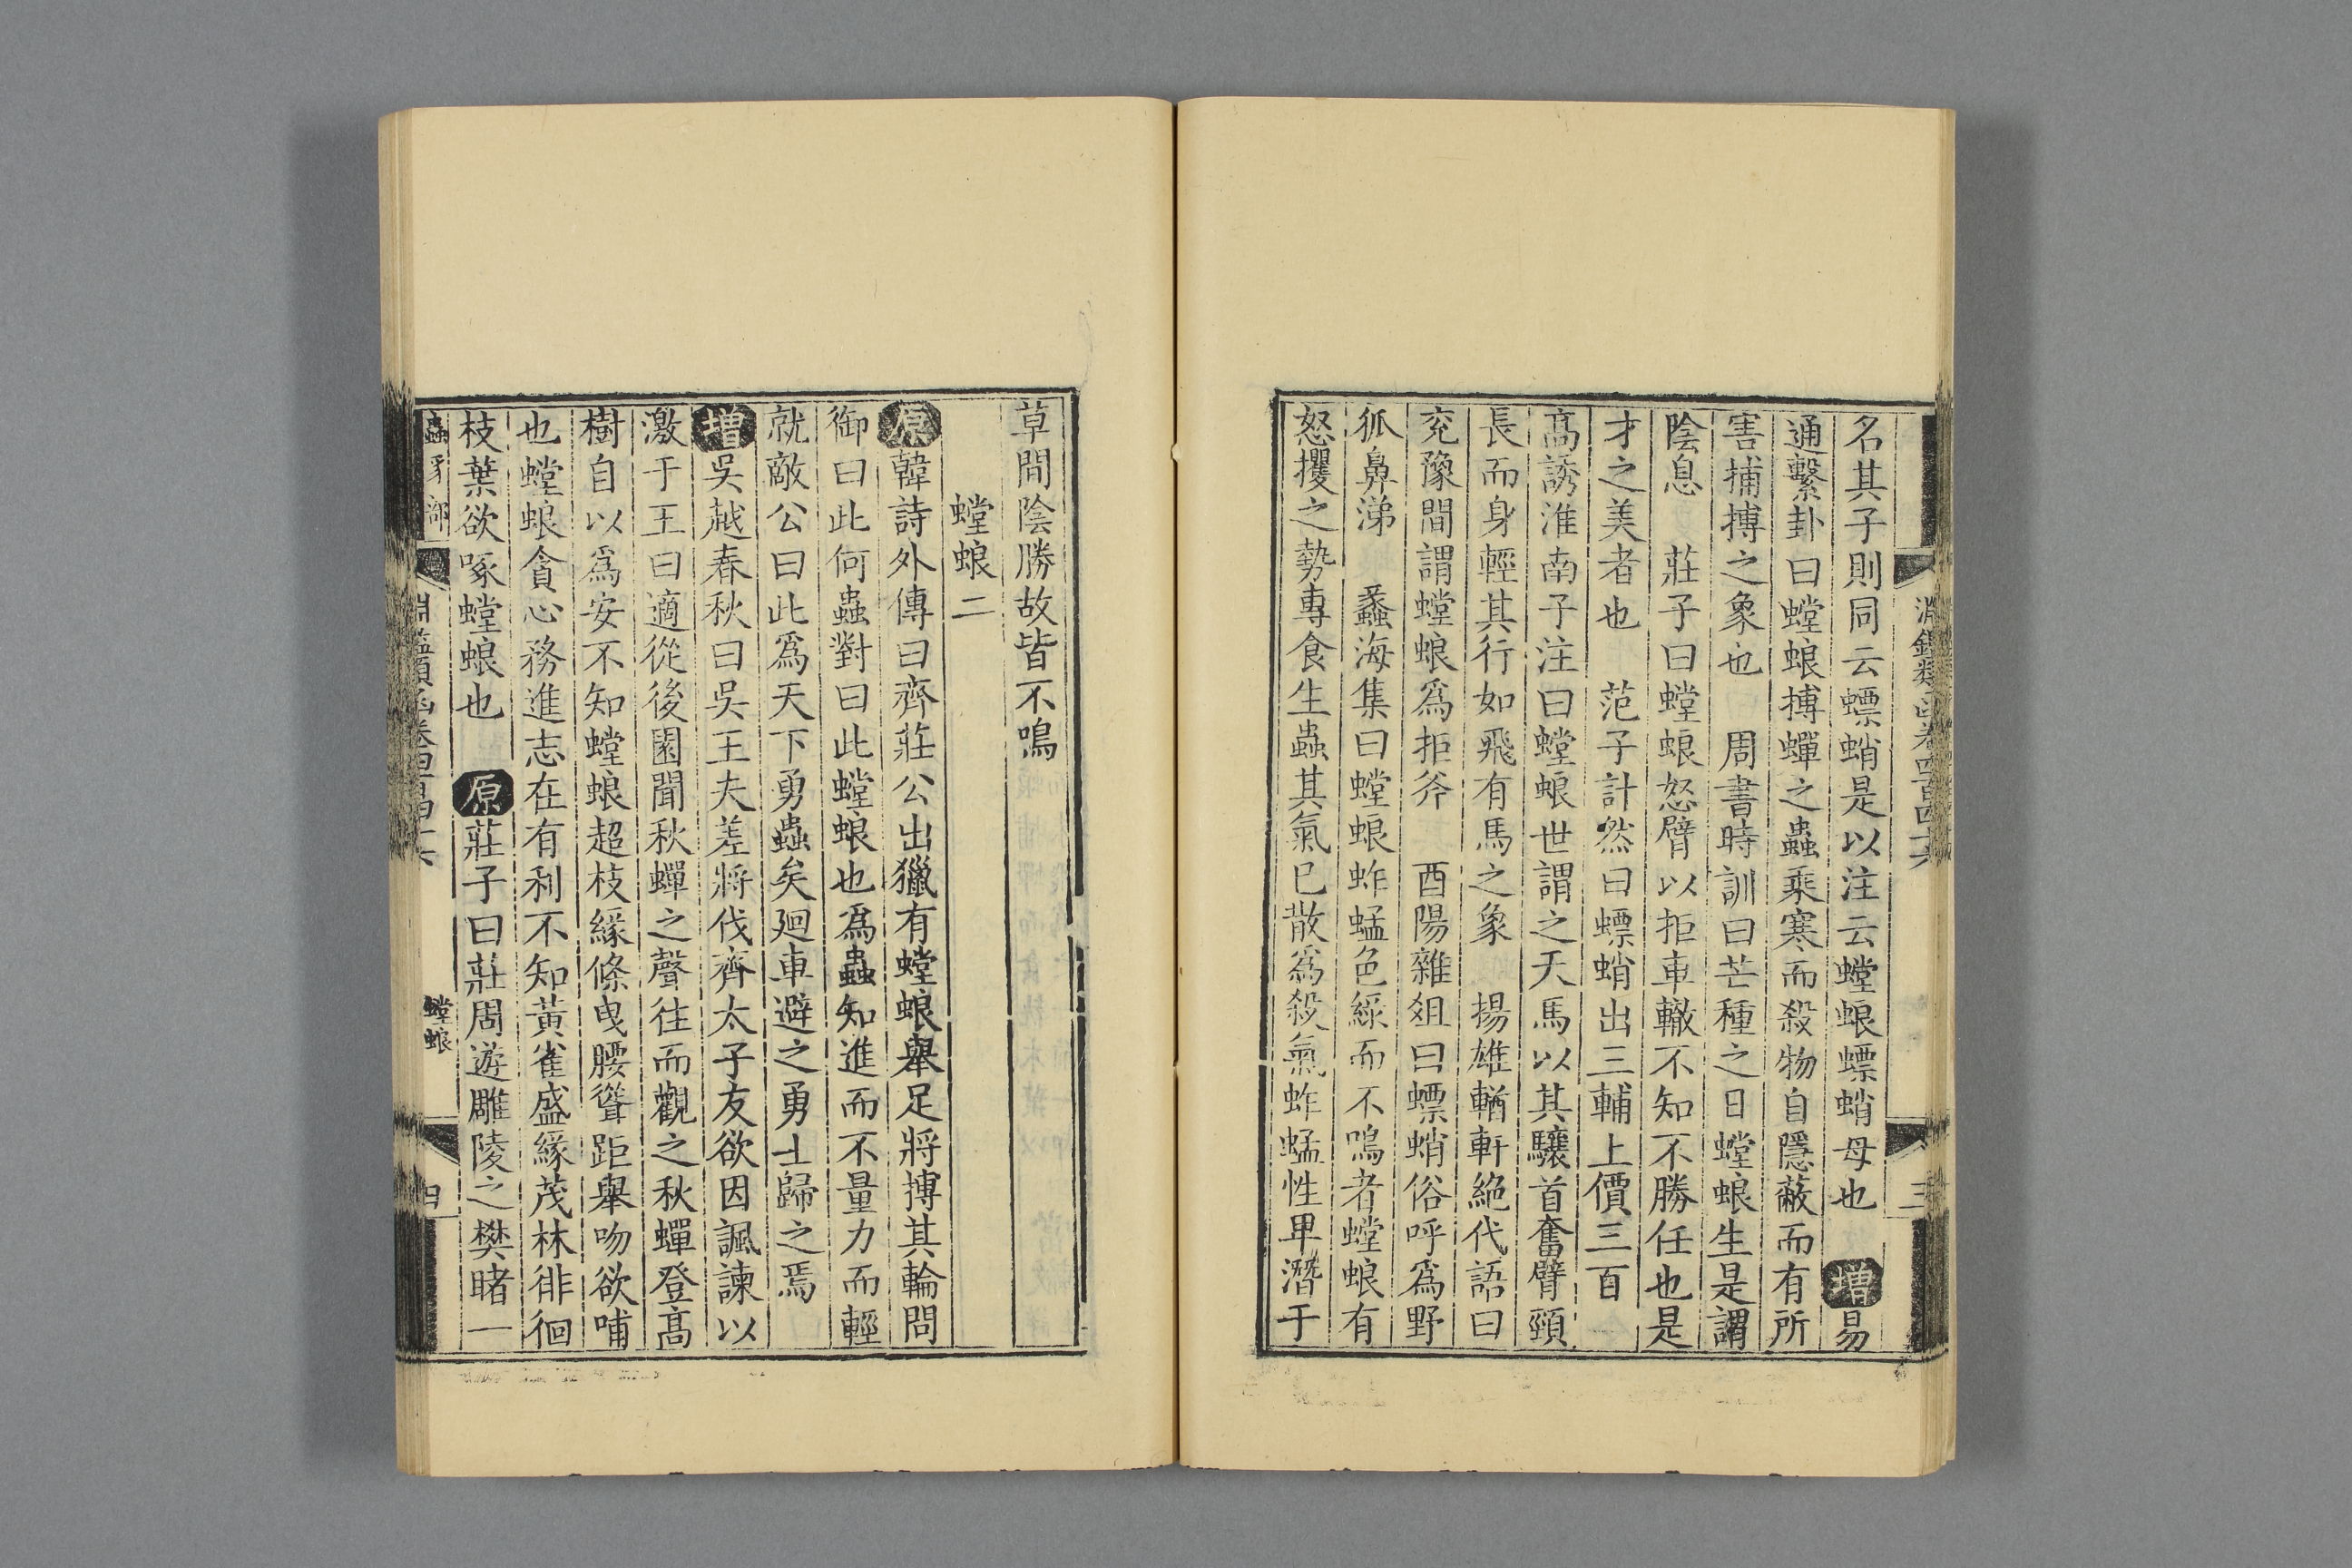 淵鑑類函卷四百四十六
三
名其子則同云螵蛸是以注云螳蜋螵蛸母也 增易
通繫卦曰螳蜋搏蟬之蟲乘寒而殺物自隱蔽而有所
害捕搏之象也 周書時訓曰芒種之日螳蜋生是謂
陰息 莊子曰螳蜋怒臂以拒車轍不知不勝任也是
才之美者也 范子計然曰螵蛸出三輔上價三百
高誘淮南子注曰螳蜋世謂之天馬以其驤首奮臂頸
長而身輕其行如飛有馬之象 揚雄輶軒絕代語曰
兖豫間謂螳蜋為拒斧 酉陽雜俎曰螵蛸俗呼為野
狐鼻涕 蠡海集曰螳蜋蚱蜢色綠而不鳴者螳蜋有
怒攫之勢專食生蟲其氣已散為殺氣蚱蜢性卑潛于
草間陰勝故皆不鳴
螳蜋二
原韓詩外傳曰齊莊公出獵有螳蜋舉足將搏其輪問
御曰此何蟲對曰此螳蜋也為蟲知進而不量力而輕
就敵公曰此為天下勇蟲矣廻車避之勇士歸之焉
增吳越春秋曰吳王夫差將伐齊太子友欲因諷諫以
激于王曰適從後園聞秋蟬之聲往而觀之秋蟬登高
樹自以為安不知螳蜋超枝緣條曳腰聳距舉吻欲哺
也螳蜋貪心務進志在有利不知黃雀盛緣茂林徘徊
枝葉欲啄螳蜋也 原莊子曰莊周遊雕陵之樊睹一
蟲豸部
淵鑑類函卷四百四十六
螳蜋
四